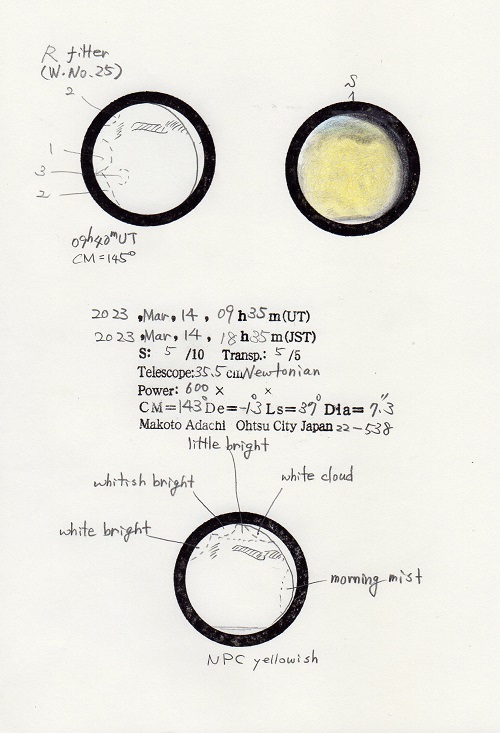 R filter
(W.No.25)
2
1
3
2
09h40mUT
CM=145°
S
2023 ,Mar, 14 , 09 h 35 m(UT)
2023 ,Mar, 14 , 18 h 35 m(JST)
S: 5 /10 Transp.: 5 /5
Telescope: 35.5 cm Newtonian
Power: 600 × ×
CM=143° De=-13° Ls=37° Dia= 7.3"
Makoto Adachi Ohtsu City Japan 22-538
little bright
whitish bright
white cloud
white bright
morning mist
NPC yellowish